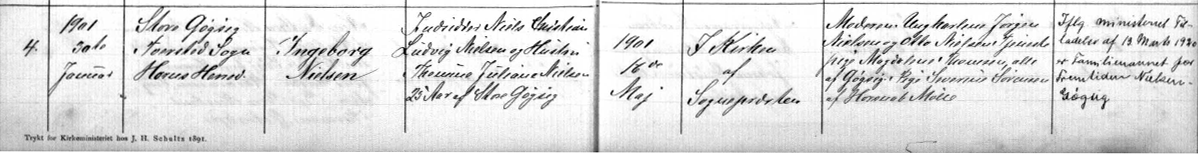 4.
1901
30te
Januar
Store Gøgsig
Sogn
Horns Herred
Ingeborg
Nielsen
Niels Christian
Ludvig Nielsen og Hustru
Thomine Juliane Nielsen
25 Aar af Store Gøgsig
1901
18de
Maj
I Kirken
af
Sognepræsten
Moderen, Ungkarlene Jørgen
Nielsen og Otto Nielsen, Tjeneste
pige Magdalene Thomsen, alle
af Gøgsig, Pige Sørensen
af Mølle
Iflg. ministeriel Til
ladelse af 13 Marts 1920
er Familienavnet for
Fremtiden Nielsen-
Gøgsig
Trykt for Kirkeministeriet hos J. H. Schultz 1891.